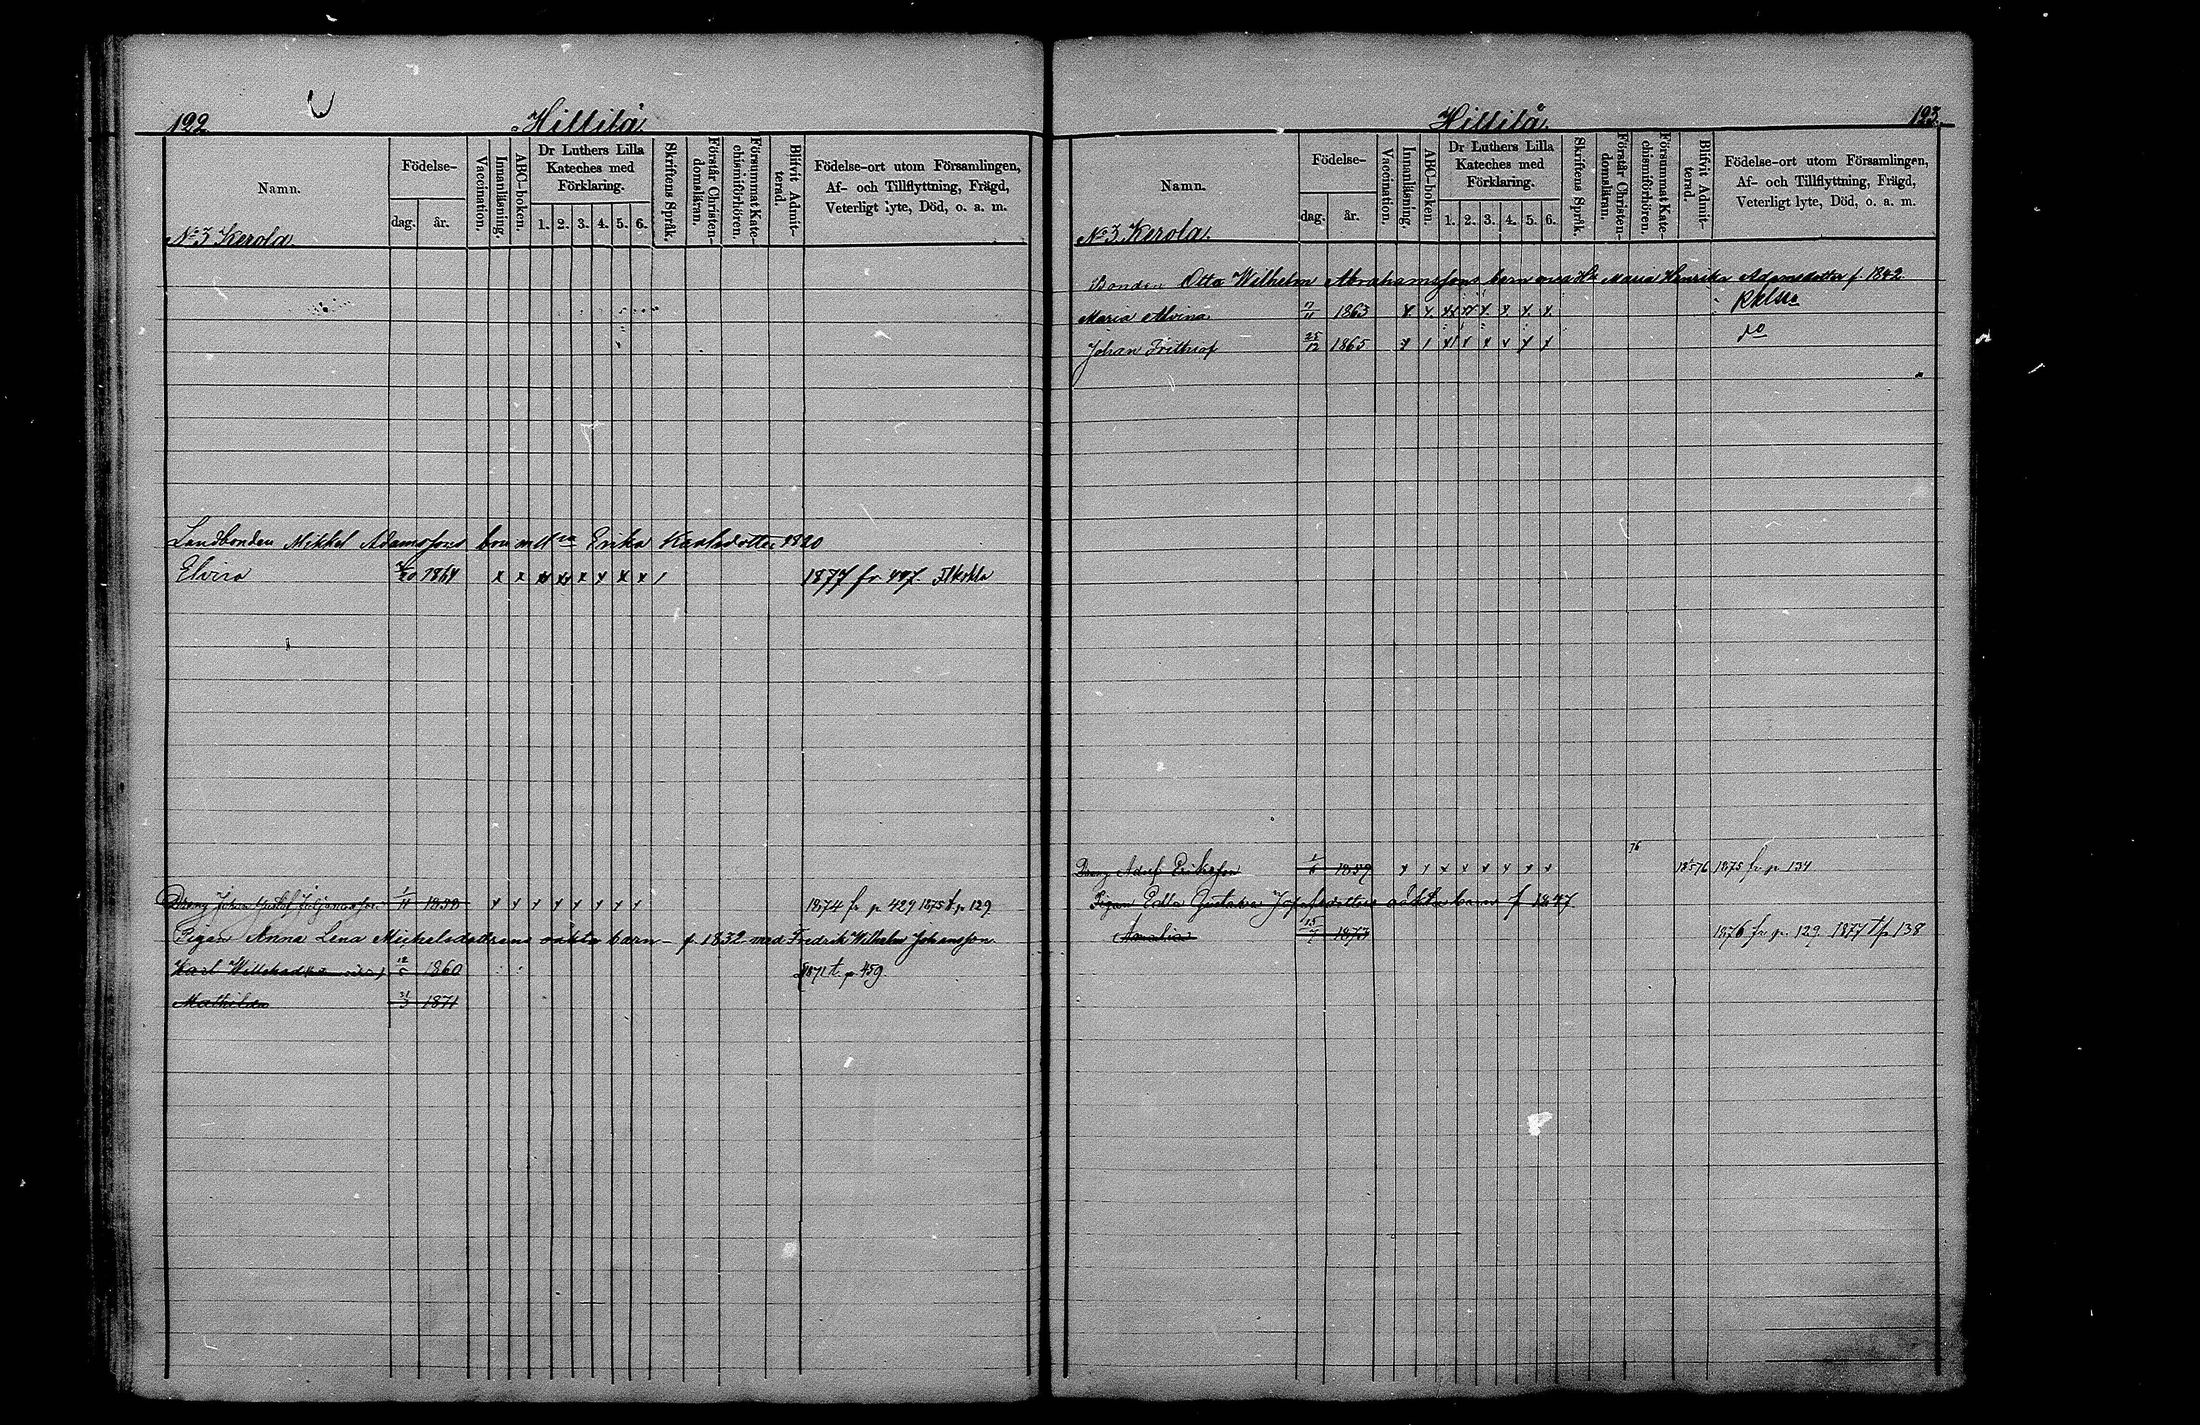 122
Hillilä
Namn.
Födelse-
dag.
år.
Vaccination.
Innanläsning.
ABC-boken.
Dr Luthers Lilla
Kateches med
Förklaring.
1. 2. 3. 4. 5. 6.
Skriftens Språk.
Förstår Christen-
domsläran.
Försummat Kate-
chismiförhören.
Blifvit Admit-
terad.
Födelse-ort utom Församlingen,
Af- och Tillflyttning, Frägd,
Veterligt lyte, Död, o. a. m.
No 3 Kerola.
Landbonden Mikkel Adamssons barn m Erika Karlsdotter 1820
Elvira 1864 x x x x x x x x / 1877 fr 447.
Dreng Johan Gustaf 1/11 1858 x x x x x x x x 1874 fr p 429 1875 t p 129
Pigan Anna Lena Mickelsdotters oäkta barn f. 1832 med Fredrik Wilhelm Johansson
Karl Willehad 1860 1871 t. p 459
Mathilda 1871
Hillilä.
123.
Namn.
Födelse-
dag.
år.
Vaccination.
Innanläsning.
ABC-boken.
Dr Luthers Lilla
Kateches med
Förklaring.
1. 2. 3. 4. 5. 6.
Skriftens Språk.
Förstår Christen-
domsläran.
Försummat Kate-
chismiförhören.
Blifvit Admit-
terad.
Födelse-ort utom Församlingen,
Af- och Tillflyttning, Frägd,
Veterligt lyte, Död, o. a. m.
No 3 Kerola.
Bonden Otto Wilhelm Abrahamssons barn med H. Maria Henrika Adamsdotter f. 1842
Maria Alvina 7/11 1863 x x x x x x x x
Johan Frithiof 25/12 1865 x / x x x x x x
76
Dreng Adolf Eriksson 1/6 1857 x x x x x x x x 18 5/5 76 1875 fr p. 134
Pigan Edla Gustava Josefsdotters oäkta barn f 1847
Amalia 1873 1876 fr p. 129 1877 t p 138